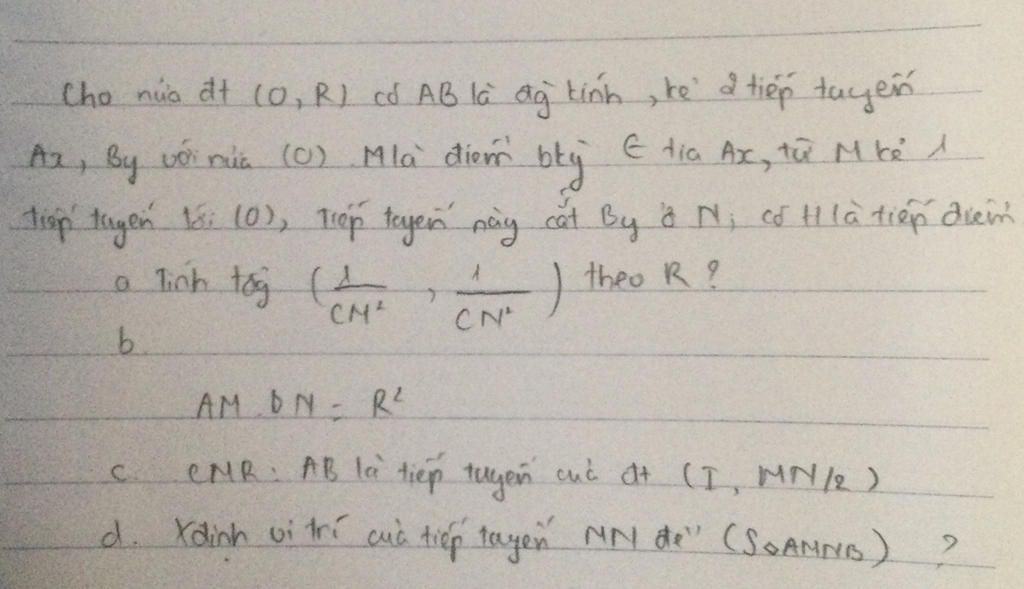 Cho nửa đt (O, R) có AB là đg kính, kẻ 2 tiếp tuyến
Ax, By với nửa (O) M là điểm btkỳ ∈ tia Ax, từ M kẻ 1
tiếp tuyến tới (O), Tiếp tuyến này cắt By ở N; có H là tiếp điểm
a Tính tổg ( 1/CM² , 1/CN² ) theo R ?
b.
AM . BN = R²
c. CMR: AB là tiếp tuyến của đt (I, MN/2)
d. Xđịnh vị trí của tiếp tuyến MN để (S◇AMNB) ?